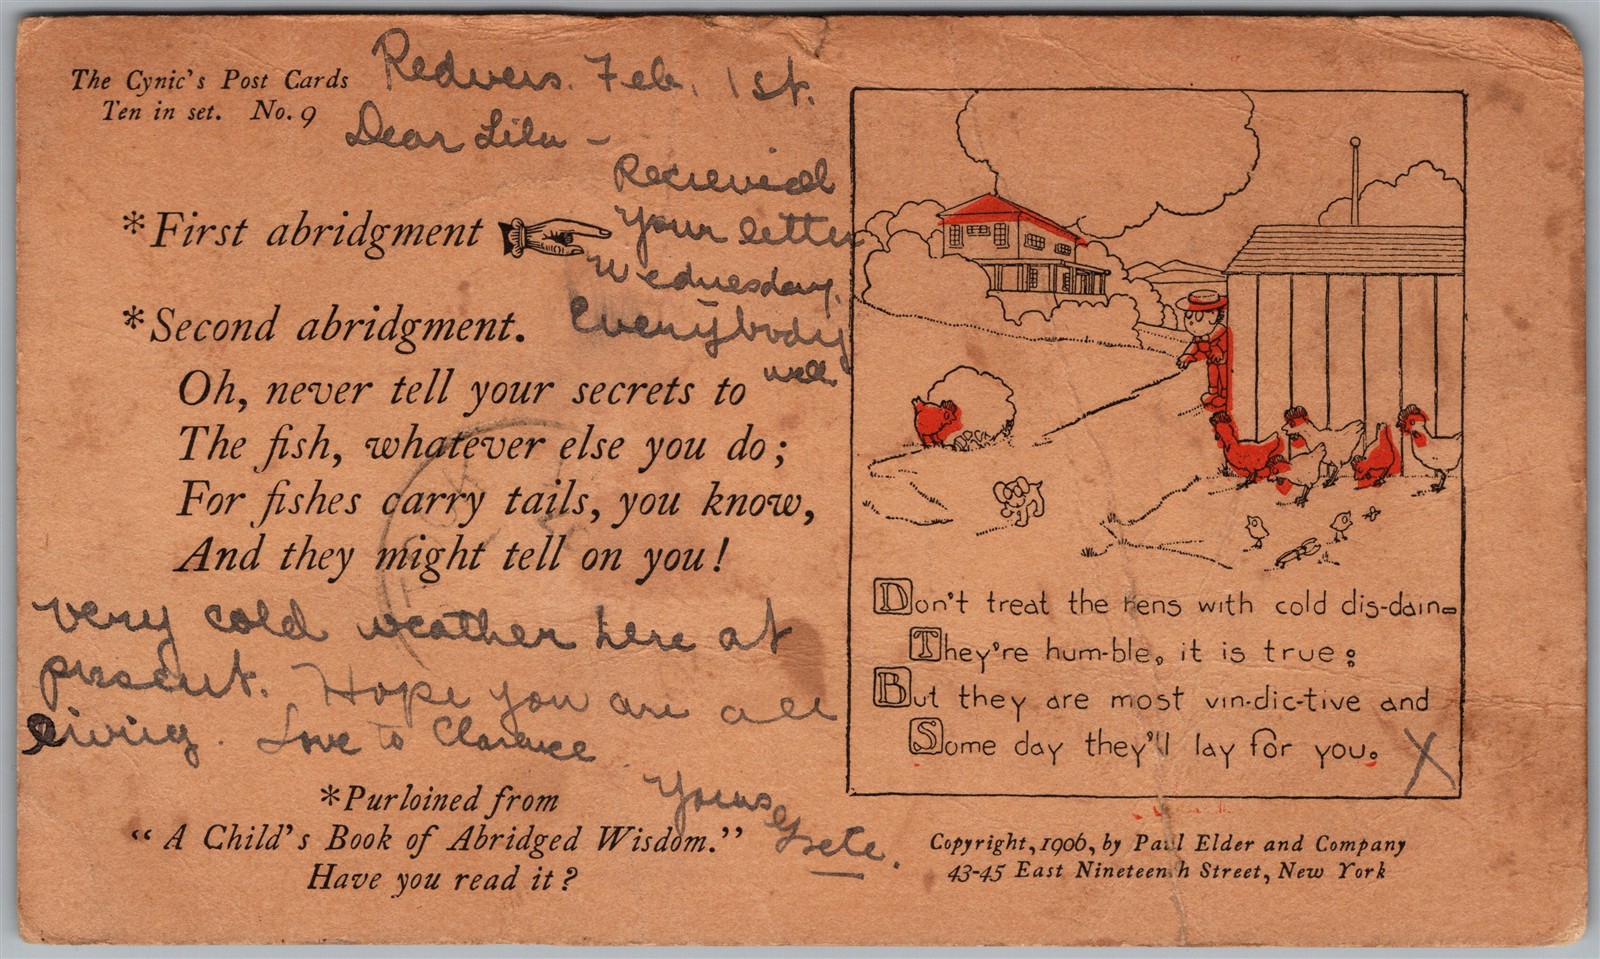 The Cynic's Post Cards
Ten in set. No. 9
Redvers. Feb. 1st.
Dear Lila –
*First abridgment
Recieved
your letter
Wednesday.
*Second abridgment.
Everybody
well
Oh, never tell your secrets to
The fish, whatever else you do;
For fishes carry tails, you know,
And they might tell on you!
very cold weather here at
present. Hope you are all
living. Love to Clarence
Yours
*Purloined from
"A Child's Book of Abridged Wisdom."
Have you read it?
Don't treat the hens with cold dis-dain–
They're hum-ble, it is true:
But they are most vin-dic-tive and
Some day they'll lay for you.
X
Copyright, 1906, by Paul Elder and Company
43-45 East Nineteenth Street, New York